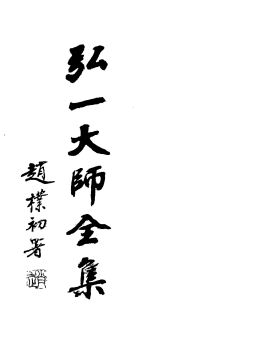 弘一大師全集
趙樸初署